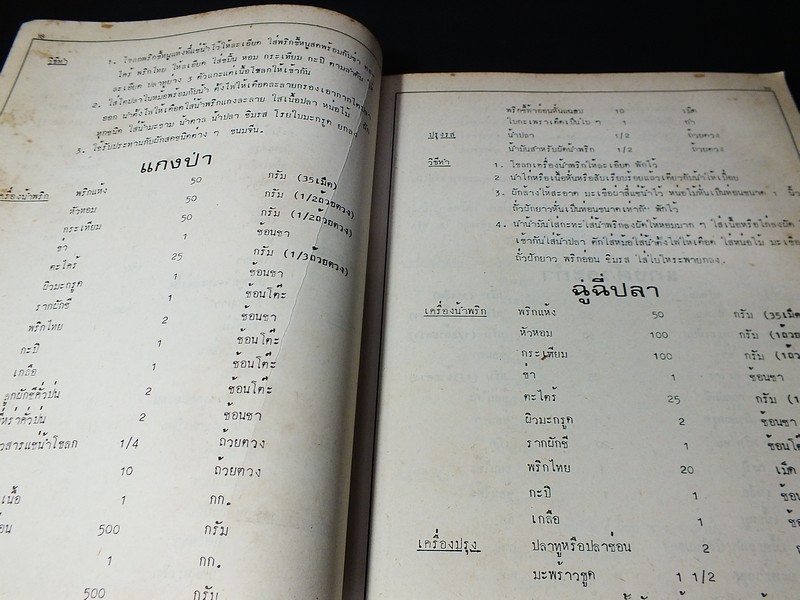 วิธีทำ 1. โขลกพริกขี้หนูแห้งที่แช่น้ำไว้ให้ละเอียด ใส่พริกขี้หนูสดพร้อมกับข่า
ไคร้ พริกไทย ให้ละเอียด ใส่ขมิ้น หอม กระเทียม กะปิ ตามลำดับ
ละเอียด ปลาทูย่าง 3 ตัวแกะแต่เนื้อโขลกให้เข้ากัน
2. ใส่ไตปลาในหม้อพร้อมกับน้ำ ตั้งไฟให้เดือดละลายกรองเอากาก
ออก นำตั้งไฟให้เดือดใส่น้ำพริกแกงละลาย ใส่เนื้อปลา หน่อไม้
ทุกชนิด ใส่น้ำมะขาม น้ำตาล น้ำปลา ชิมรส โรยใบมะกรูด ยกลง
3. ใช้รับประทานกับผักสดชนิดต่าง ๆ ขนมจีน.
แกงป่า
เครื่องน้ำพริก พริกแห้ง 50 กรัม (35เม็ด)
หัวหอม 50 กรัม (1/2ถ้วยตวง)
กระเทียม 50 กรัม (1/2ถ้วยตวง)
ข่า 1 ช้อนชา
ตะไคร้ 25 กรัม (1/3ถ้วยตวง)
ผิวมะกรูด 1 ช้อนชา
รากผักชี 1 ช้อนโต๊ะ
พริกไทย 2 ช้อนชา
กะปิ 1 ช้อนโต๊ะ
เกลือ 1 ช้อนโต๊ะ
ลูกผักชีคั่วป่น 2 ช้อนโต๊ะ
ยี่หร่าคั่วป่น 2 ช้อนชา
วสารแช่น้ำโขลก 1/4 ถ้วยตวง
10 ถ้วยตวง
เนื้อ 1 กก.
500 กรัม
1 กก.
500 กรัม
พริกชี้ฟ้าอ่อนหั่นแฉลบ 10 เม็ด
ใบกะเพราเด็ดเป็นใบ ๆ 1 ถ้วย
ปรุงรส น้ำปลา 1/2 ถ้วยตวง
น้ำมันสำหรับผัดน้ำพริก 1/2 ถ้วยตวง
วิธีทำ 1. โขลกเครื่องน้ำพริกให้ละเอียด พักไว้
2. นำไก่หรือเนื้อหั่นหรือสับเรียบร้อยแล้วเคี่ยวกับน้ำให้เปื่อย
3. ผักล้างให้สะอาด มะเขือผ่าสี่แช่น้ำไว้ หน่อไม้หั่นเป็นท่อนขนาด 1 นิ้ว
ถั่วฝักยาวหั่นเป็นท่อนขนาดเท่ากัน พักไว้
4. นำน้ำมันใส่กะทะใส่น้ำพริกลงผัดให้หอมมาก ๆ ใส่เนื้อหรือไก่ลงผัด
เข้ากันใส่น้ำปลา ตักใส่หม้อใส่น้ำตั้งไฟให้เดือด ใส่หน่อไม้ มะเขือ
ถั่วฝักยาว พริกอ่อน ชิมรส ใส่ใบโหระพายกลง.
ฉู่ฉี่ปลา
เครื่องน้ำพริก พริกแห้ง 50 กรัม (35เม็ด
หัวหอม 100 กรัม (1ถ้วย
กระเทียม 100 กรัม (1ถ้วย
ข่า 1 ช้อนชา
ตะไคร้ 25 กรัม (1
ผิวมะกรูด 2 ช้อนชา
รากผักชี 1 ช้อนโต๊ะ
พริกไทย 20 เม็ด
กะปิ 1 ช้อน
เกลือ 1 ช้อน
เครื่องปรุง ปลาทูหรือปลาช่อน 2
มะพร้าวขูด 1 1/2